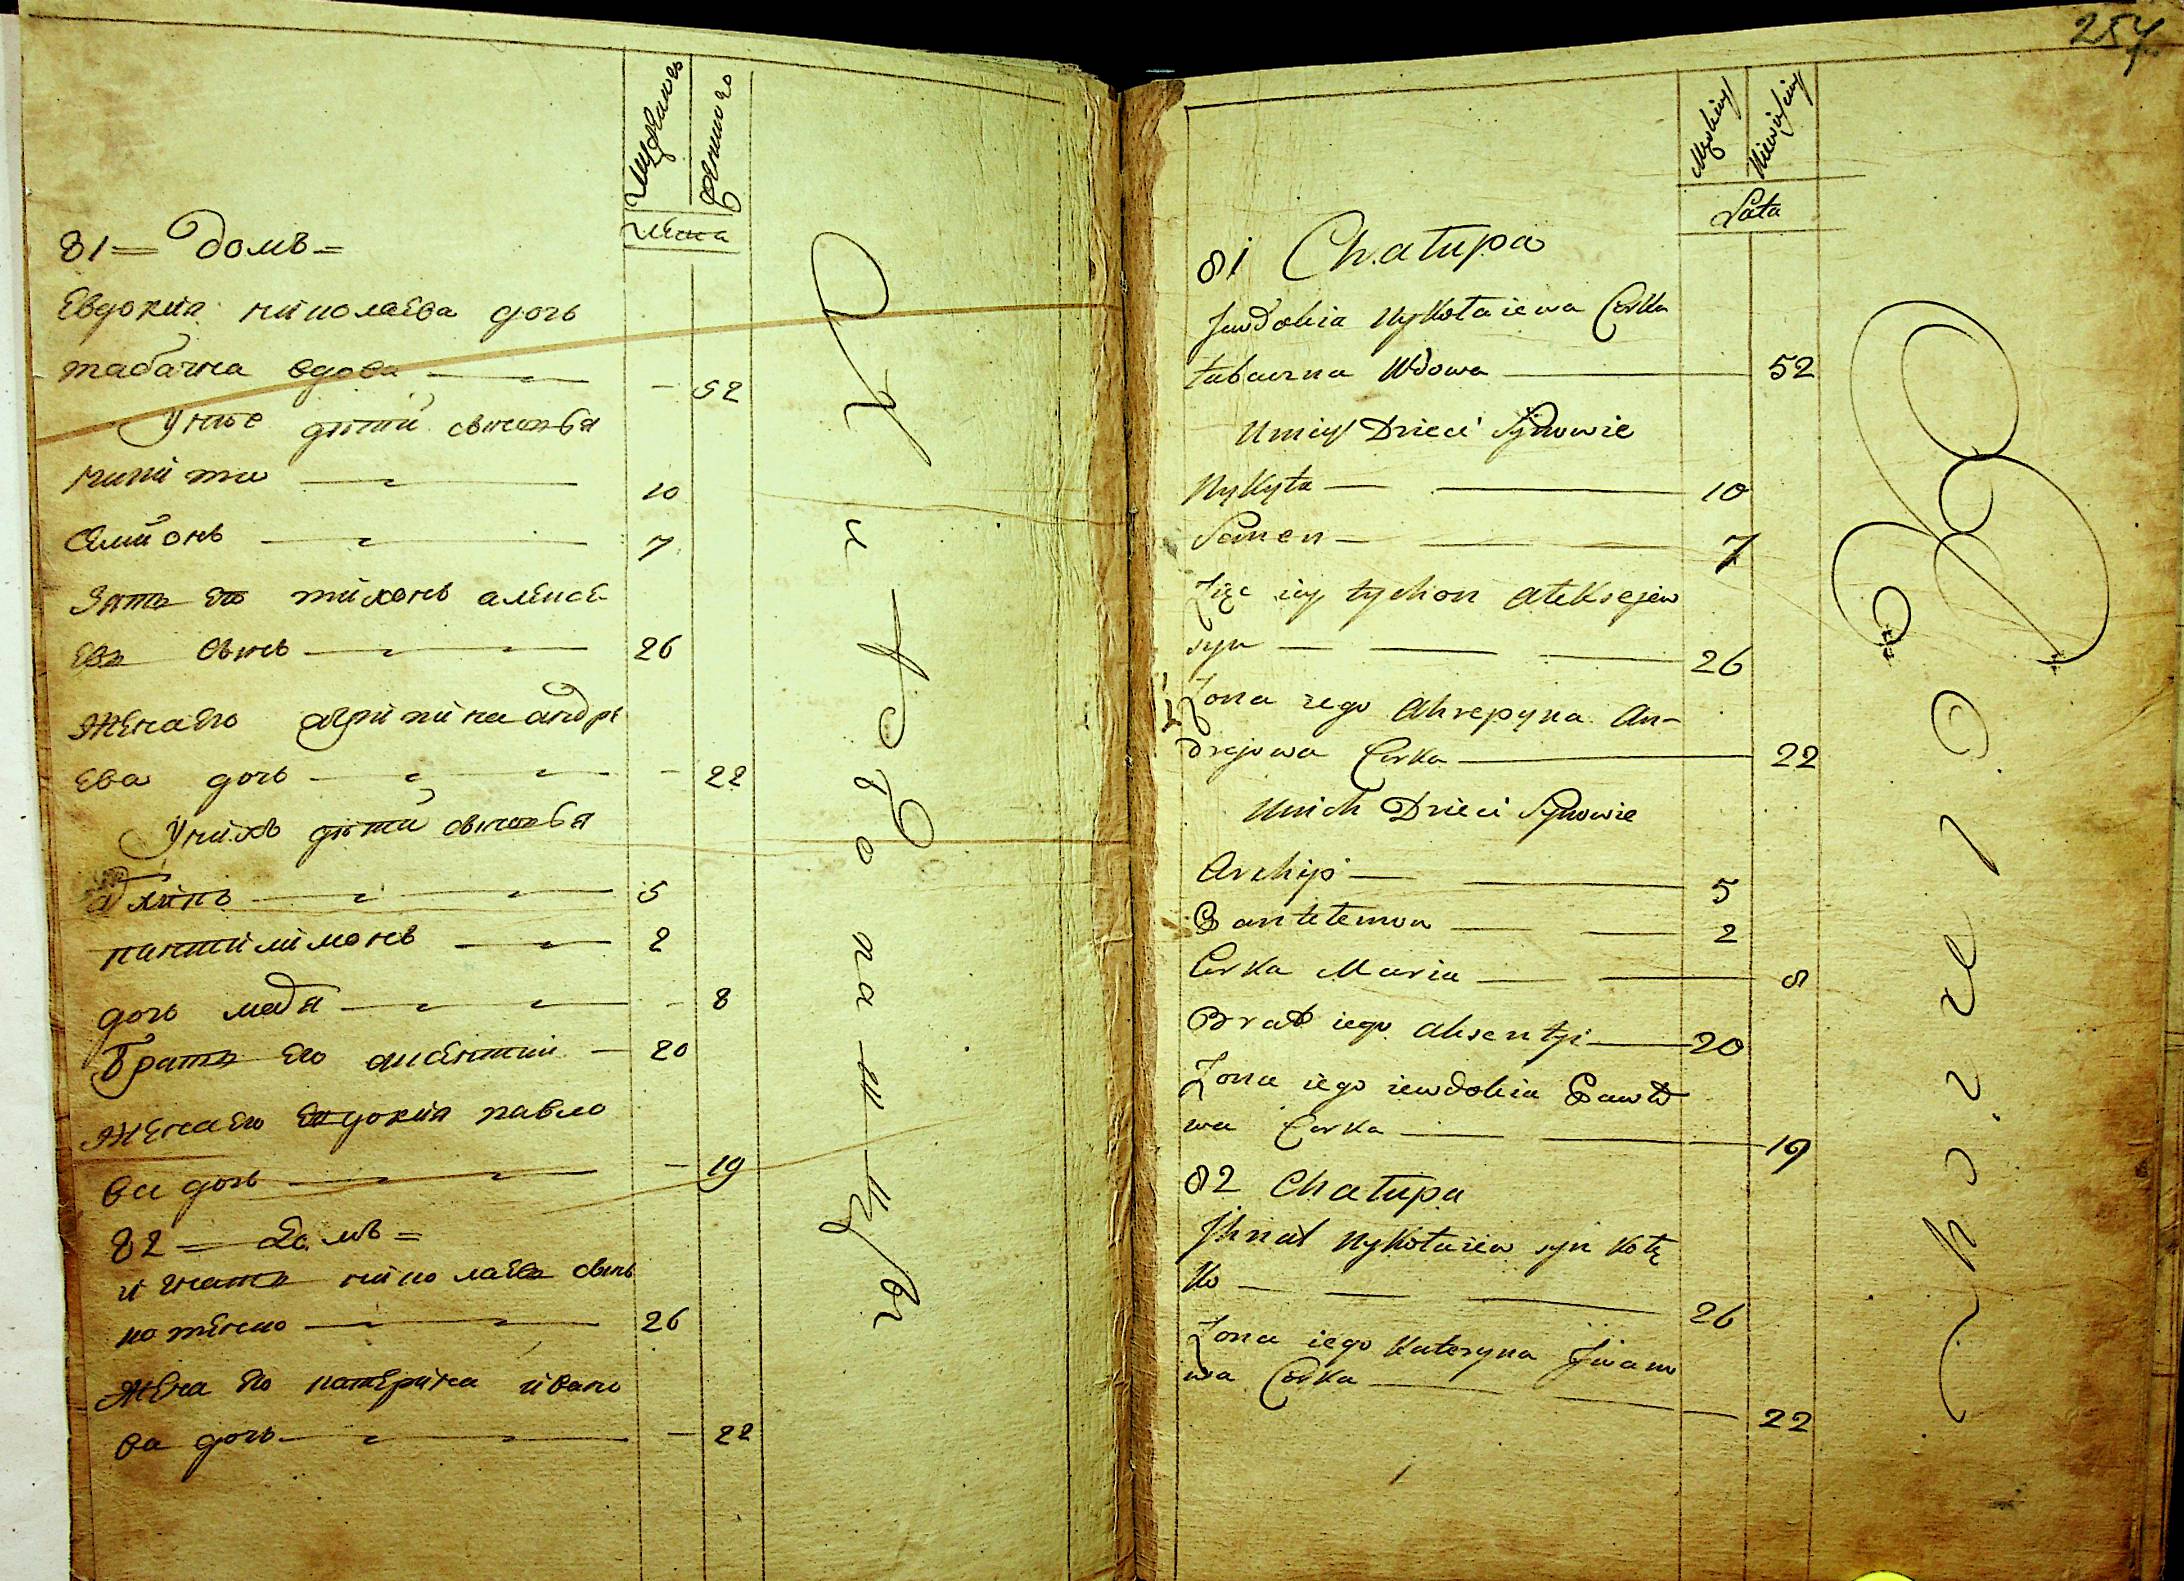 81 = Домъ =
Евдокия николаева дочь
табачна вдова — 52
У нее дѣти сыновья
никита — 10
Семионъ — 7
Зять ее тихонъ алексе
евъ сынъ — 26
Жена его агрипина андре
ева дочь — 22
У нихъ дѣти сыновья
архипъ — 5
пантилимонъ — 2
дочь маря — 8
Братъ его аксентий — 20
Жена его Евдокия павло
ва дочь — 19
82 = Домъ =
игнатъ николаевъ сынъ
котенко — 26
Жена его катерина ивано
ва дочь — 22
254
Męskiey
Niewieściey
Lata
81 Chałupa
Jewdokia Nykołaiewa Corka
tabaczna Wdowa — 52
U niey Dzieci Synowie
Nykyta — 10
Semen — 7
Zięc iey tychon Ałeksejew
syn — 26
Zona iego Ahrepyna An-
drejowa Corka — 22
U nich Dzieci Synowie
Archip — 5
Pantełemon — 2
Corka Maria — 8
Brat iego Aksentji — 20
Zona iego iewdokia Pawło
wa Corka — 19
82 Chałupa
Jhnat Nykołaiew syn Kotę
ko — 26
Zona iego Kateryna Jwano
wa Corka — 22